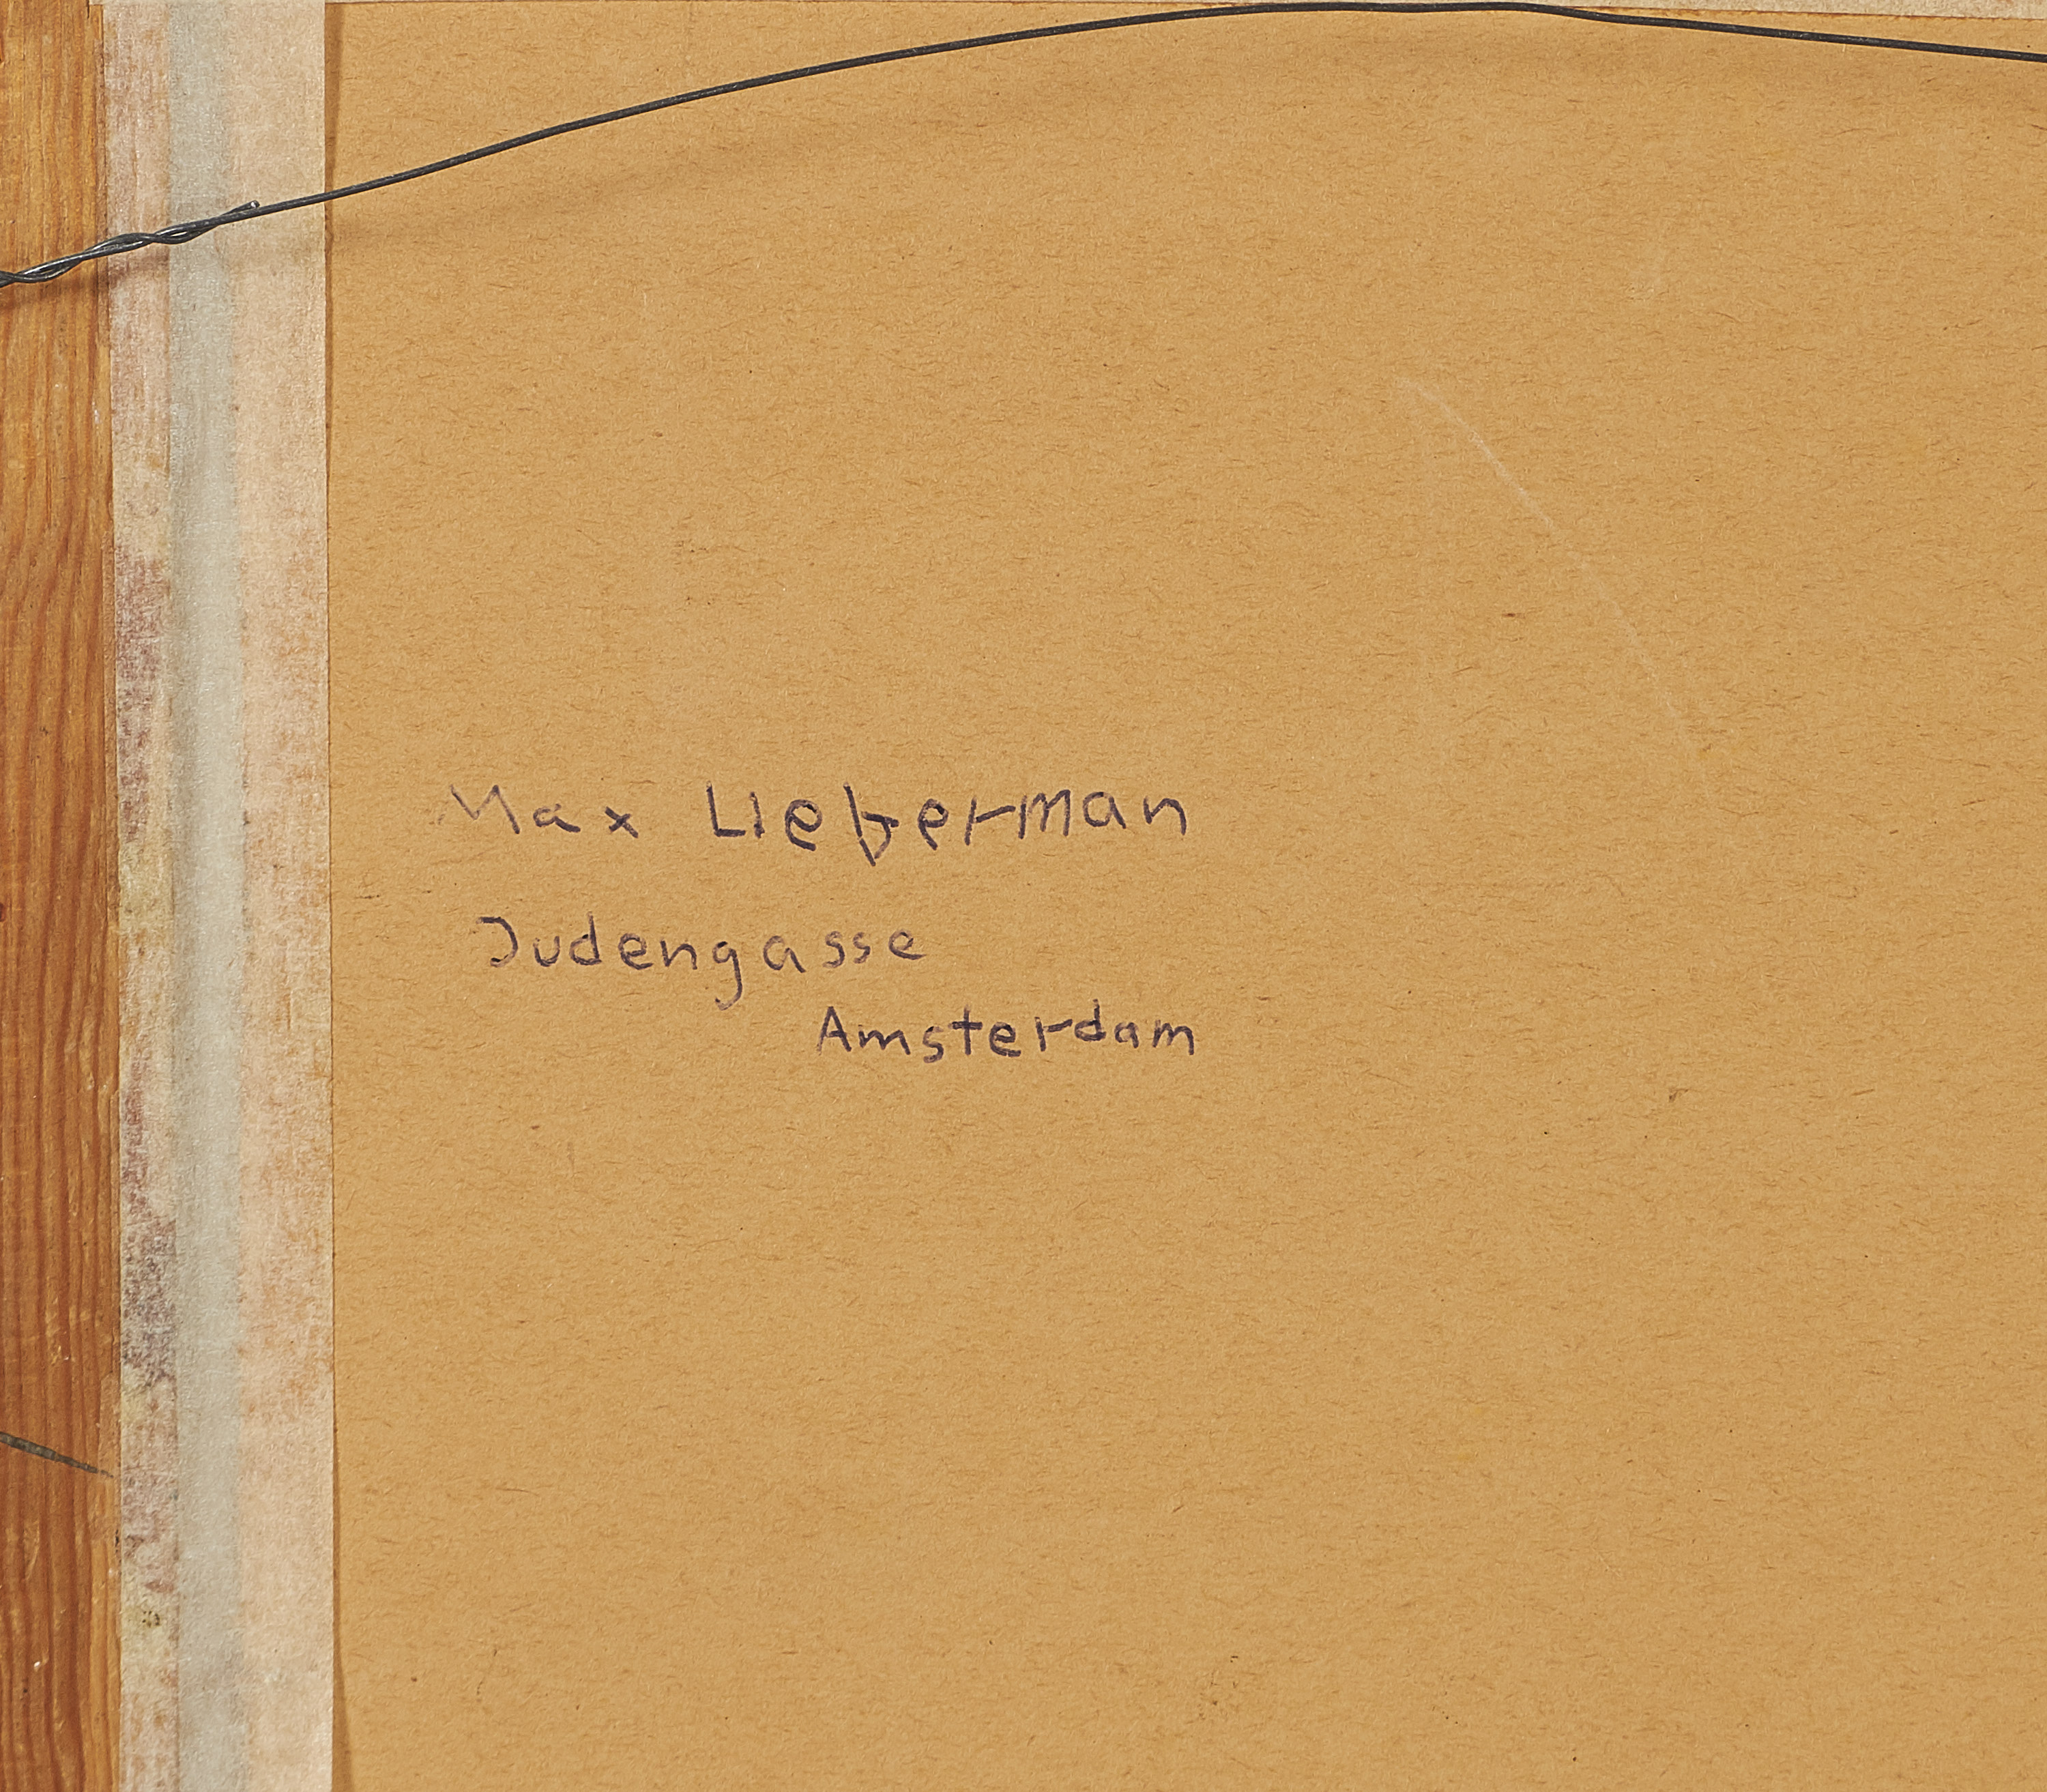 Max Lieberman
Judengasse
Amsterdam